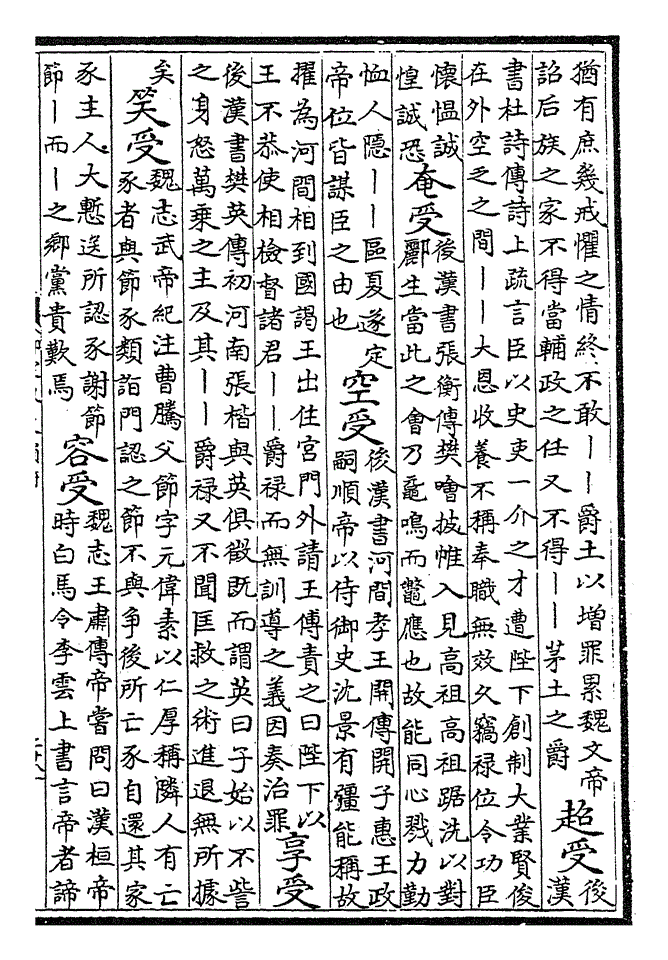 猶有庶幾戒懼之情終不敢丨丨爵土以增罪累魏文帝
詔后族之家不得當輔政之任又不得丨丨茅土之爵
超受
後
漢
書杜詩傳詩上疏言臣以史吏一介之才遭陛下創制大業賢俊
在外空乏之間丨丨大恩收養不稱奉職無效久竊祿位令功臣
懷愠誠
惶誠恐
奄受
後漢書張衡傳樊噲披帷入見高祖高祖踞洗以對
酈生當此之會乃黿鳴而鼈應也故能同心戮力勤
恤人隱丨丨區夏遂定
帝位皆謀臣之由也
空受
後漢書河間孝王開傳開子惠王政
嗣順帝以侍御史沈景有彊能稱故
擢為河間相到國謁王出住宮門外請王傅責之曰陛下以
王不恭使相檢督諸君丨丨爵祿而無訓導之義因奏治罪
享受
後漢書樊英傳初河南張楷與英俱徵既而謂英曰子始以不訾
之身怒萬乘之主及其丨丨爵祿又不聞匡救之術進退無所據
矣
笑受
魏志武帝紀注曹騰父節字元偉素以仁厚稱隣人有亡
豕者與節豕類詣門認之節不與爭後所亡豕自還其家
豕主人大慙送所認豕謝節
節丨而丨之鄉黨貴歎焉
容受
魏志王肅傳帝嘗問曰漢桓帝
時白馬令李雲上書言帝者諦